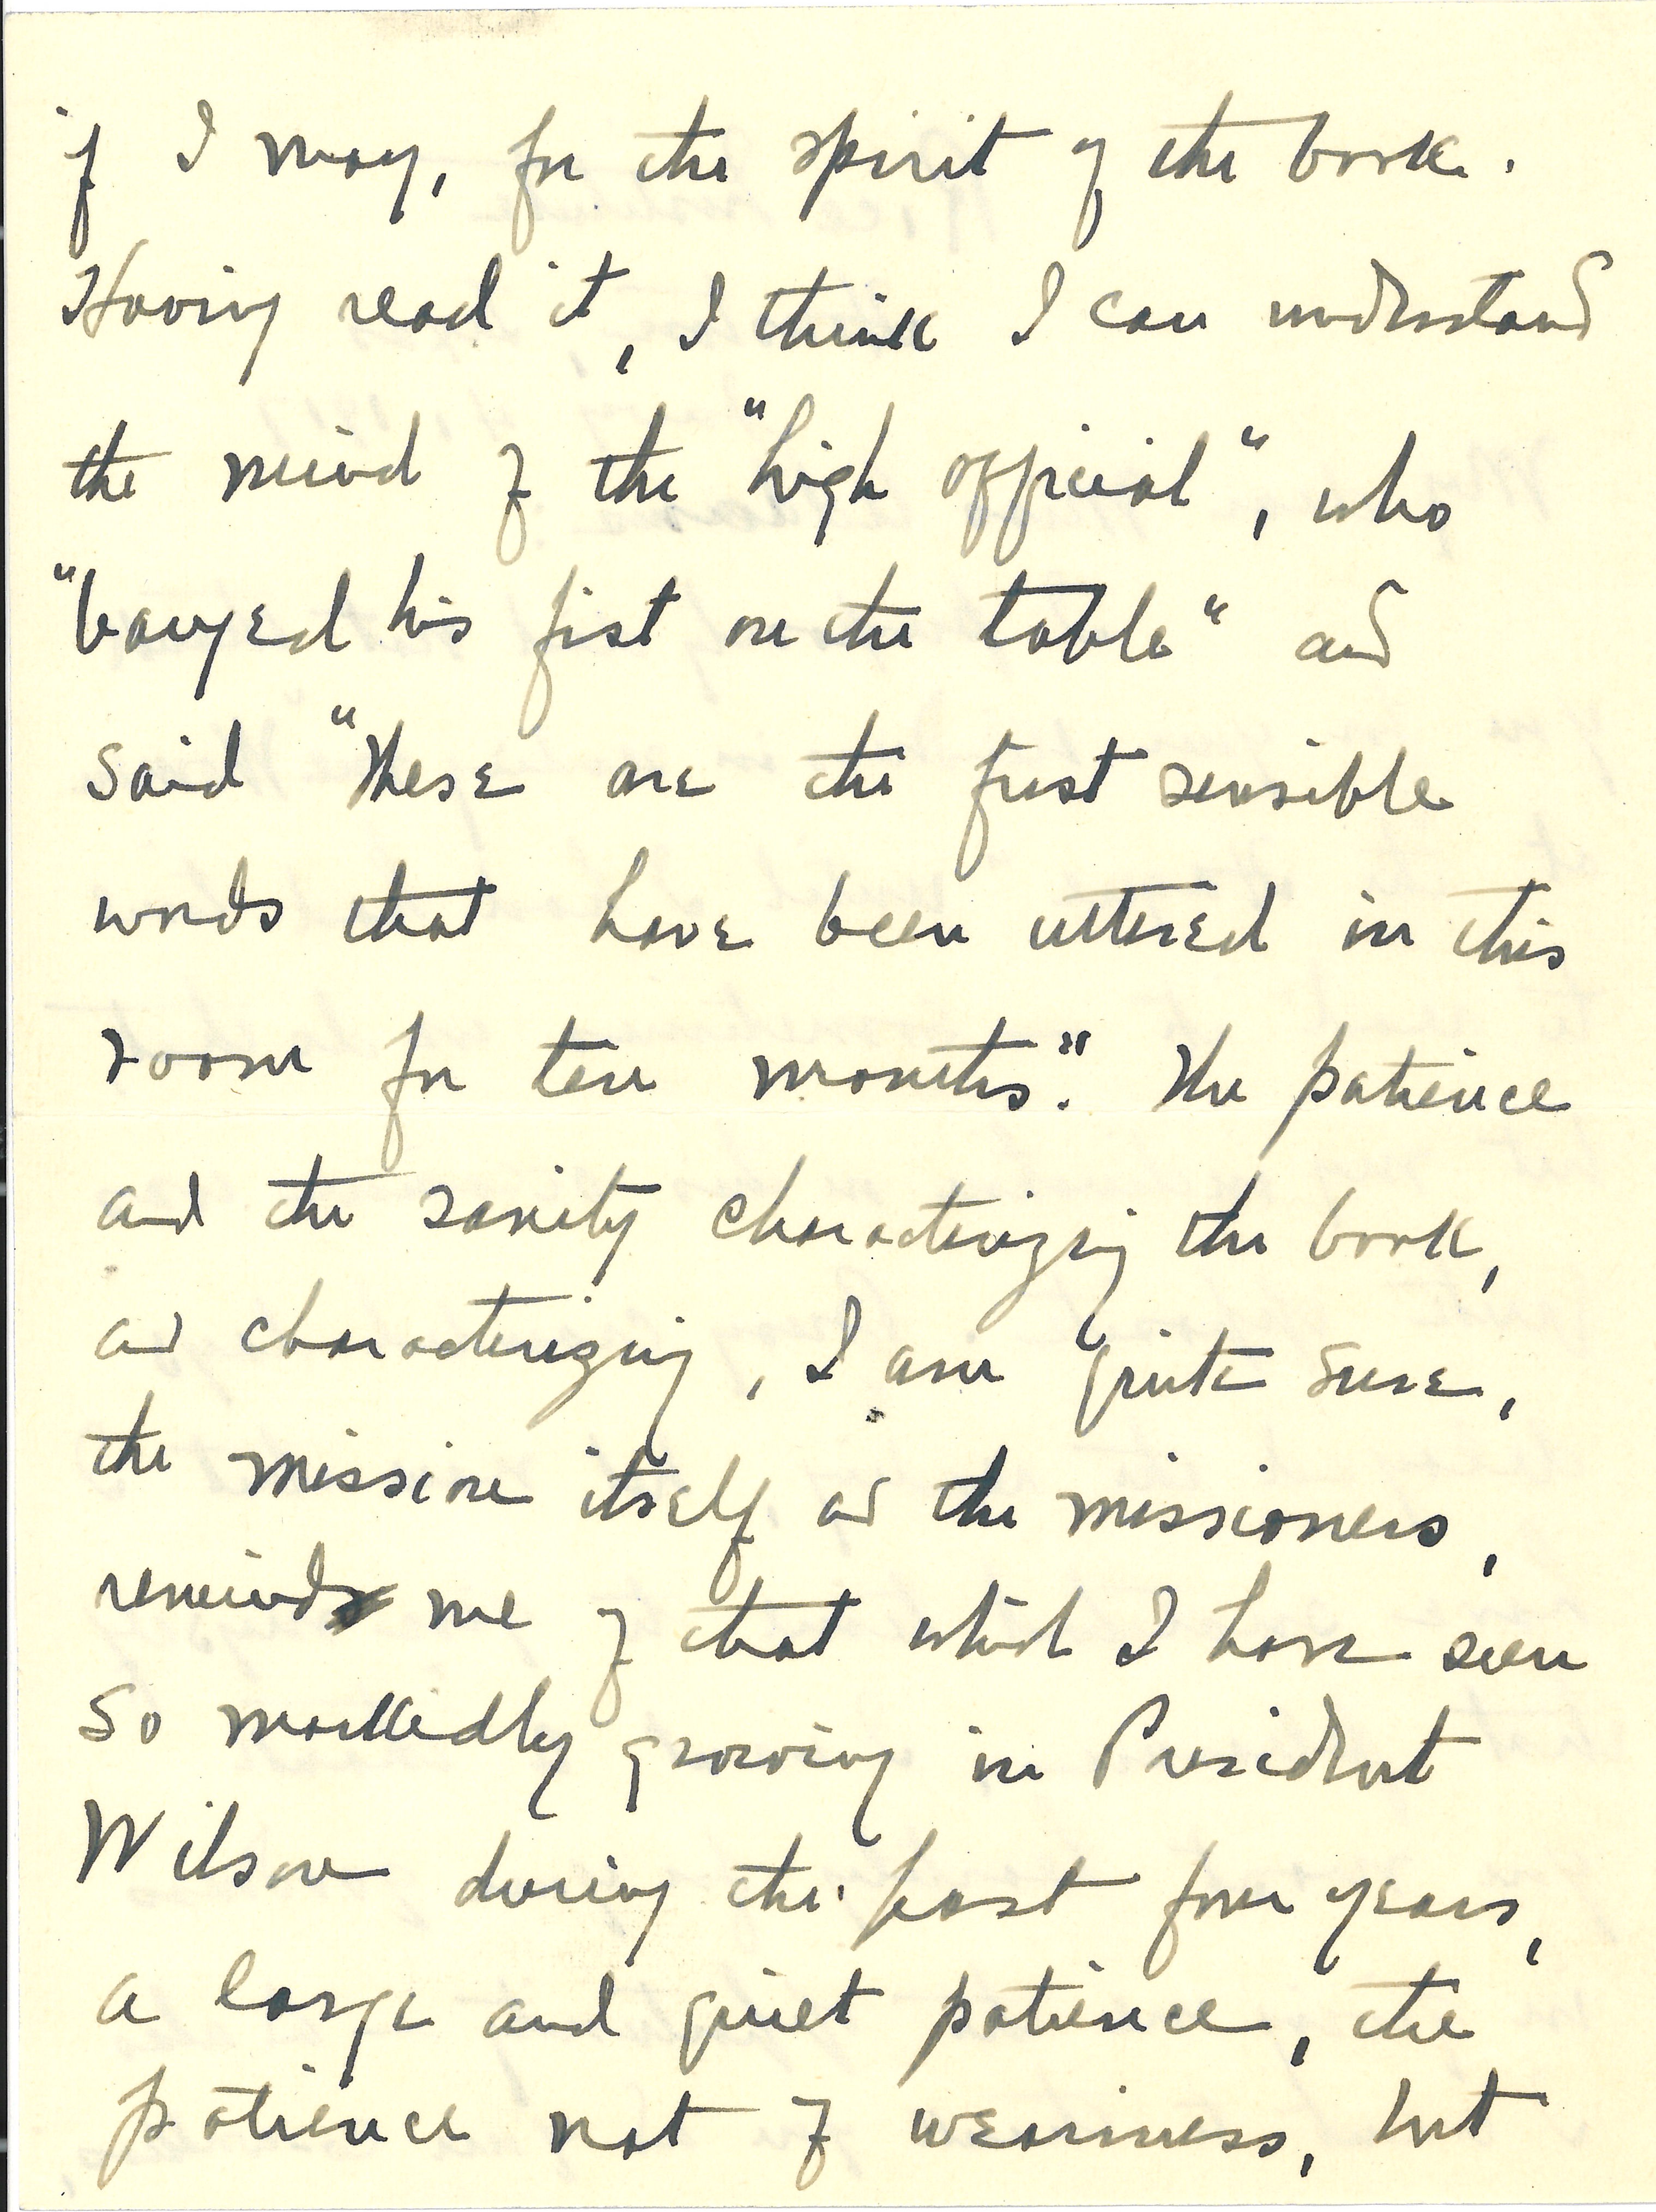 if I may, for the spirit of the book.
Having read it, I think I can understand
the mind of the "high official", who
"banged his fist on the table" and
said "These are the first sensible
words that have been uttered in this
room for ten months". The patience
and the sanity characterizing the book,
and characterizing, I am quite sure,
the mission itself and the missioners,
remind me of that which I have seen
so markedly growing in President
Wilson during the past four years,
a large and quiet patience, the
patience not of weariness, but